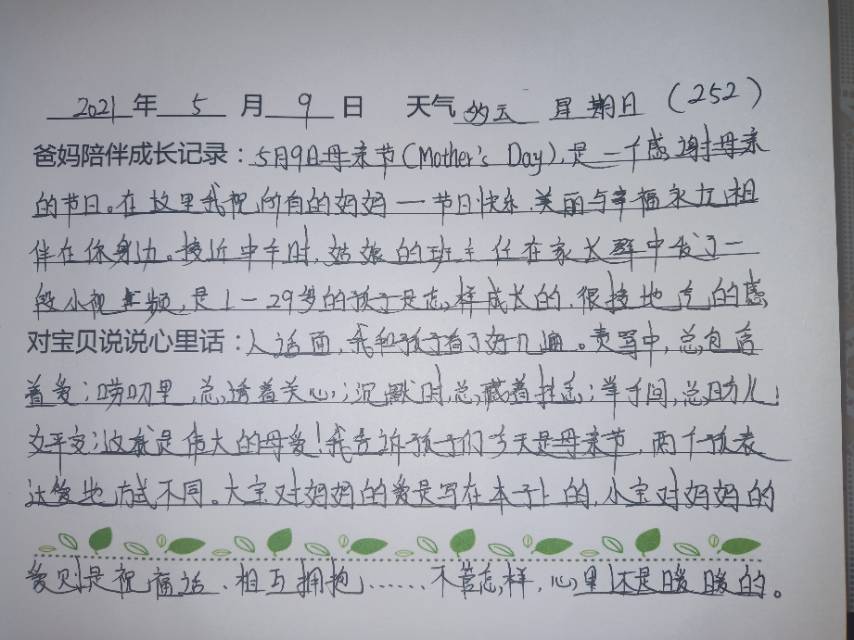 2021年 5 月 9 日 天气 多云 星期日 (252)
爸妈陪伴成长记录：5月9日母亲节(Mother's Day),是一个感谢母亲
的节日。在这里我祝所有的妈妈一节日快乐,美丽与幸福永远相
伴在你身边。接近中午时,姑娘的班主任在家长群中发了一
段小视频,是1-29岁的孩子是怎样成长的,很接地气的感
对宝贝说说心里话：人话面,我和孩子看了好几遍。责骂中,总包含
着爱;唠叨里,总透着关心;沉默时,总藏着挂念;举手间,总盼儿
女平安;这就是伟大的母爱!我告诉孩子们今天是母亲节,两个孩表
达爱地方式不同。大宝对妈妈的爱是写在本子上的,小宝对妈妈的
爱则是祝福话、相互拥抱……不管怎样,心里还是暖暖的。